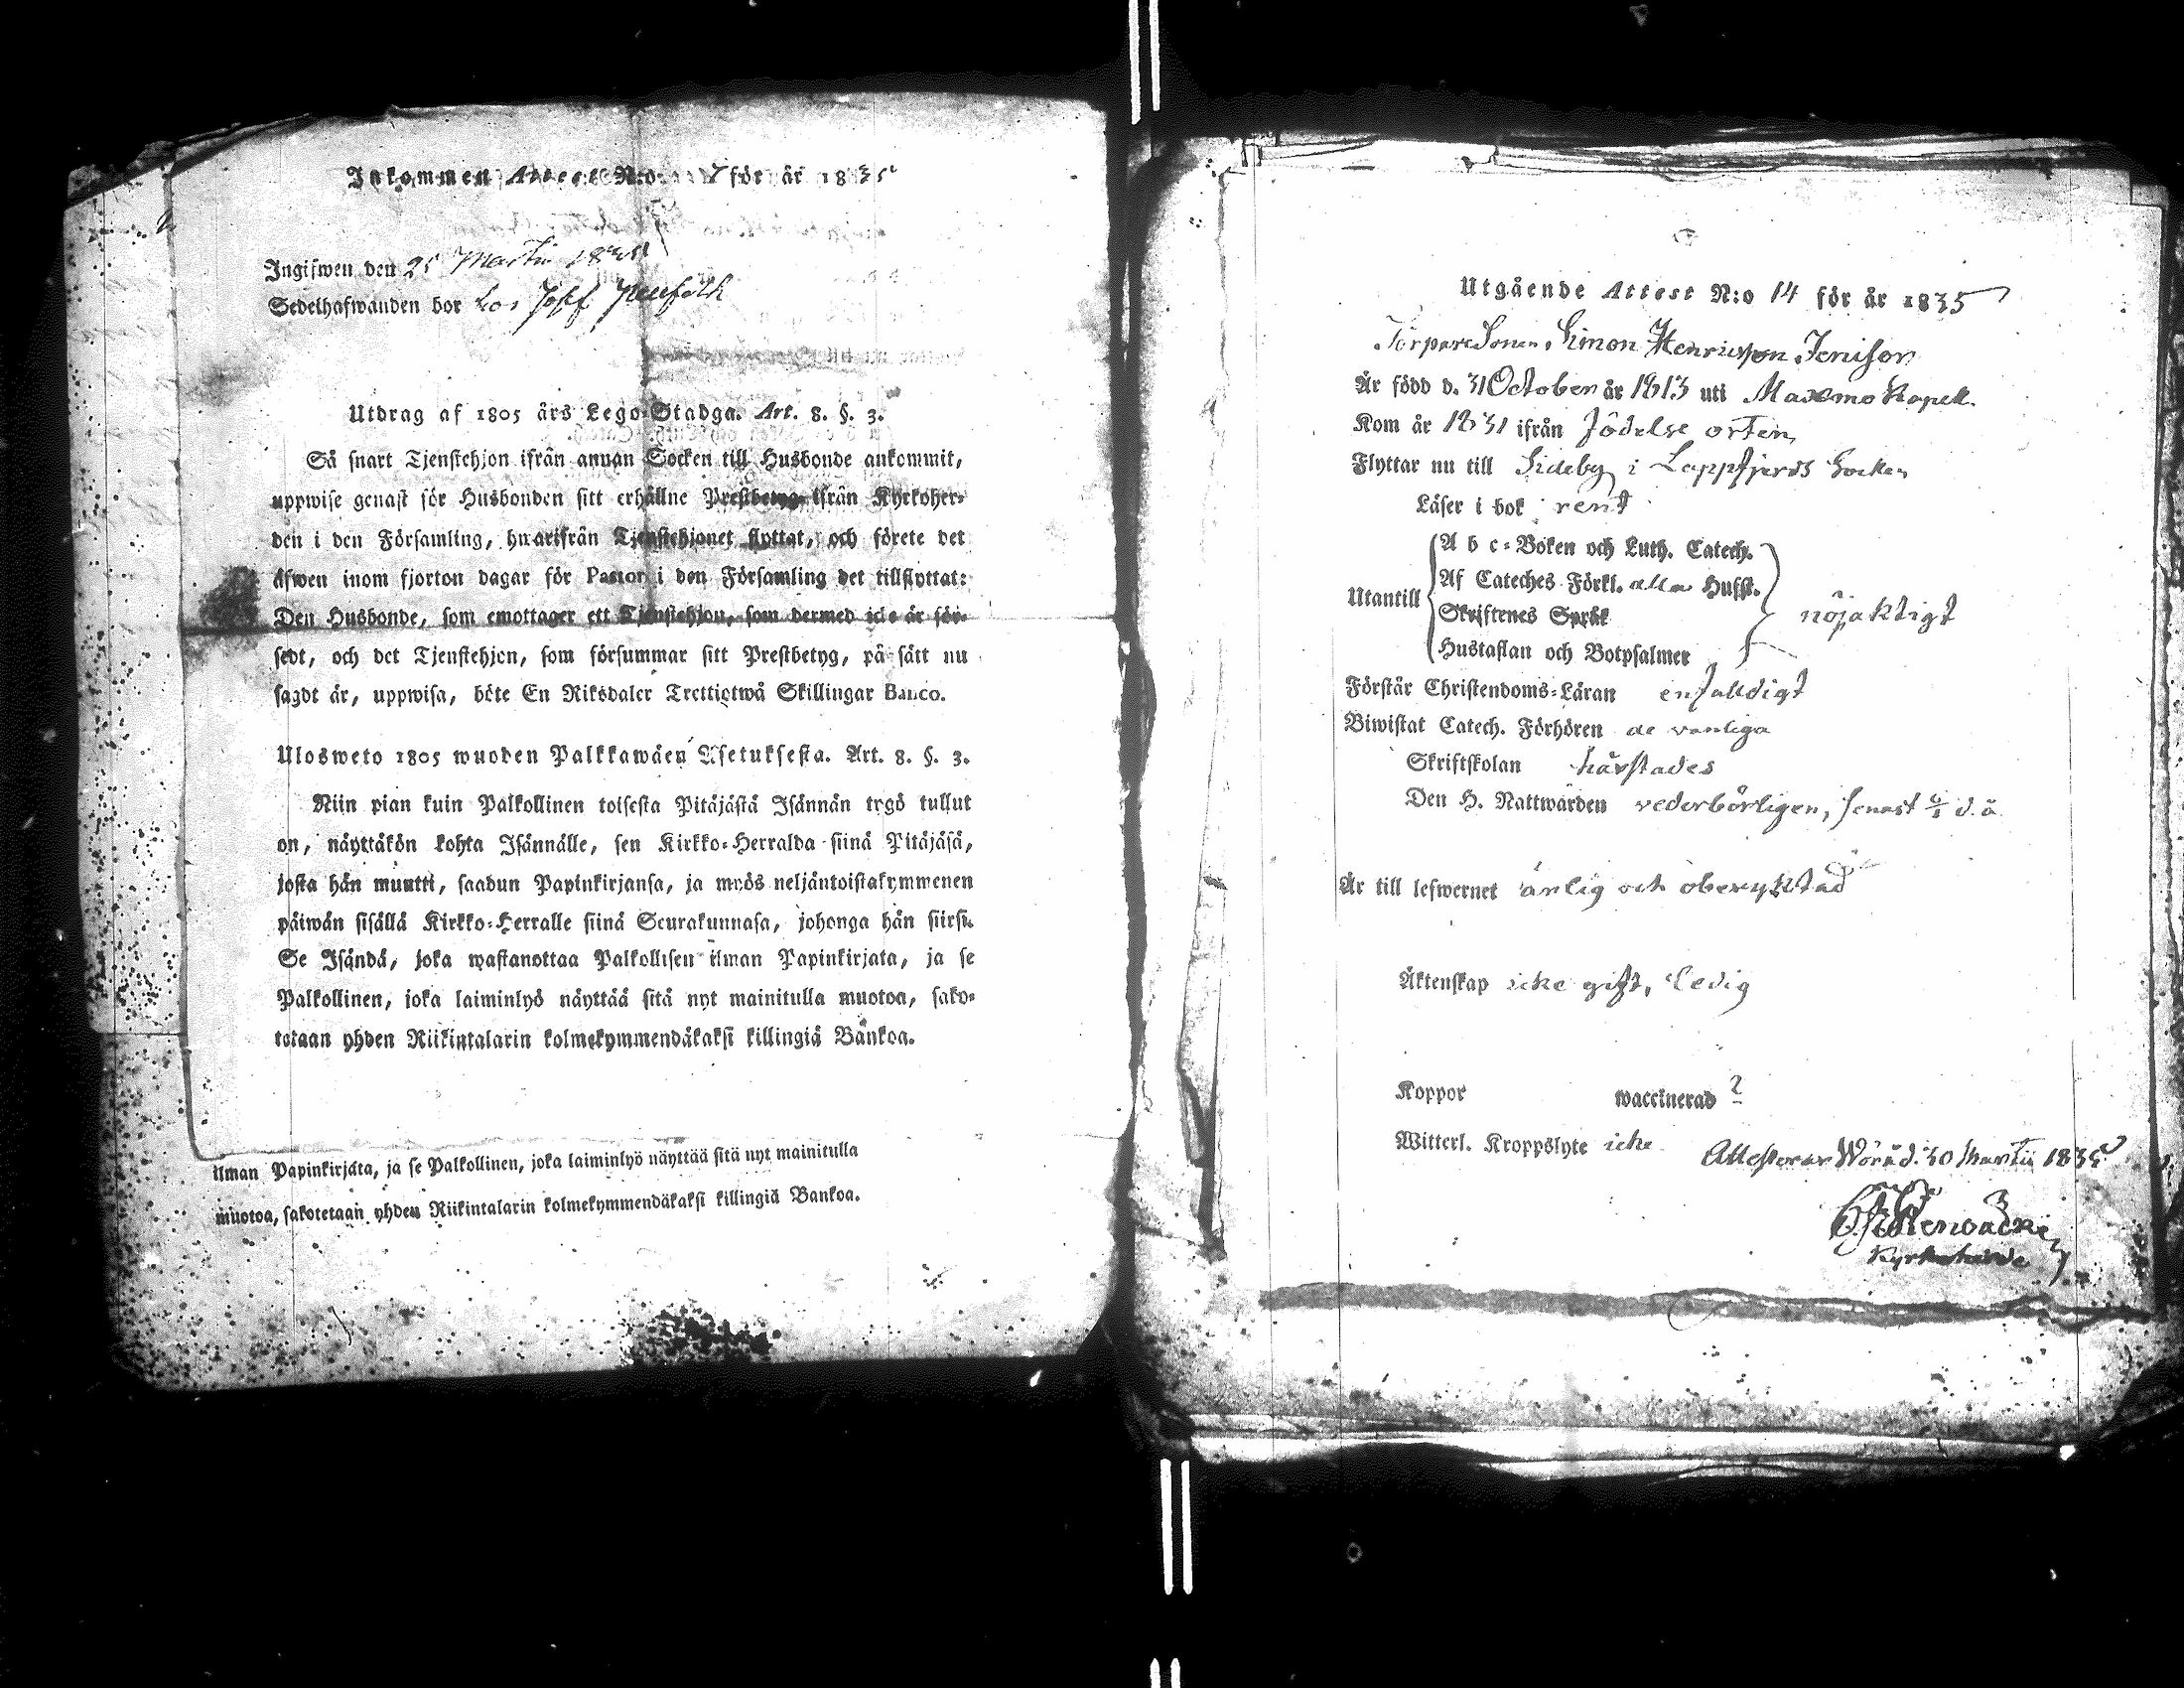 Inkommen Attest N:o 7 för år 1835
Ingifwen den 25 Martii 1835
Sedelhafwanden bor hos
Utdrag af 1805 års Lego-Stadga. Art. 8. §. 3.
Så snart Tjenstehjon ifrån annan Socken till Husbonde ankommit,
uppwise genast för Husbonden sitt erhållne Prestbetyg ifrån Kyrkoher-
den i den Församling, hwarifrån Tjenstehjonet flyttat, och förete det
äfwen inom fjorton dagar för Pastor i den Församling det tillflyttat:
Den Husbonde, som emottager ett Tjenstehjon, som dermed icke är för-
sedt, och det Tjenstehjon, som försummar sitt Prestbetyg, på sätt nu
sagdt är, uppwisa, böte En Riksdaler Trettiotwå Skillingar Banco.
Ulosweto 1805 wuoden Palkkawäen Asetuksesta. Art. 8. §. 3.
Niin pian kuin Palkollinen toisesta Pitäjästä Isännän tygö tullut
on, näyttäkön kohta Isännälle, sen Kirkko-Herralda siinä Pitäjäsä,
josta hän muutti, saadun Papinkirjansa, ja myös neljäntoistakymmenen
päiwän sisällä Kirkko-Herralle siinä Seurakunnasa, johonga hän siirsi.
Se Isändä, joka wastanottaa Palkollisen ilman Papinkirjata, ja se
Palkollinen, joka laiminlyö näyttää sitä nyt mainitulla muotoa, sako-
tetaan yhden Riikintalarin kolmekymmendäkaksi killingiä Bankoa.
ilman Papinkirjata, ja se Palkollinen, joka laiminlyö näyttää sitä nyt mainitulla
muotoa, sakotetaan yhden Riikintalarin kolmekymmendäkaksi killingiä Bankoa.
Utgående Attest N:o 14 för år 1835
Torpare Sonen Simon Henricsson Jenisson
Är född d. 31 October år 1813 uti Maxmo Kapell.
Kom år 1831 ifrån födelse orten
Flyttar nu till Sideby i Lappfjerds Socken
Läser i bok rent
Utantill
A b c-Boken och Luth. Catech.
Af Cateches Förkl. alla Hufst.
Skriftenes Språk
Hustaflan och Botpsalmer
nöjaktigt
Förstår Christendoms-Läran enfaldigt
Biwistat Catech. Förhören de vanliga
Skriftskolan härstädes
Den H. Nattwarden vederbörligen, senast d. å
Är till lefwernet ärlig och oberyktad
Äktenskap icke gift, ledig
Koppor waccinerad ?
Witterl. Kroppslyte icke
Attesterar Wörå d. 30 Martii 1835
Kyrkoherde